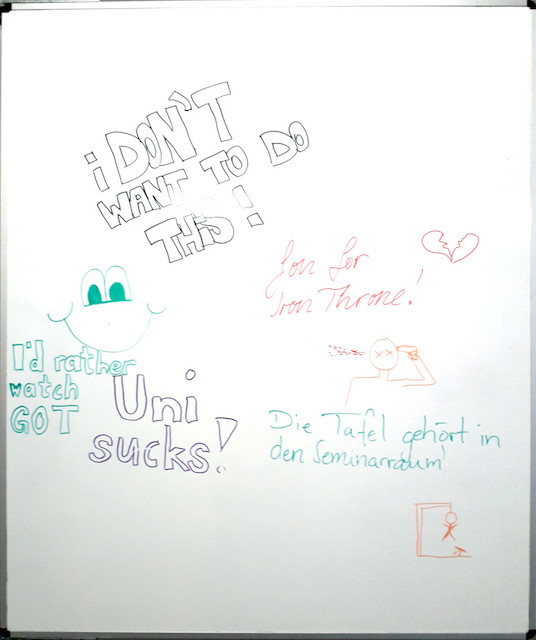 i DON'T
WANT TO DO
THiS!
Jon for
Iron Throne!
I'd rather
watch
GOT
Uni
sucks!
Die Tafel gehört in
den Seminarraum!